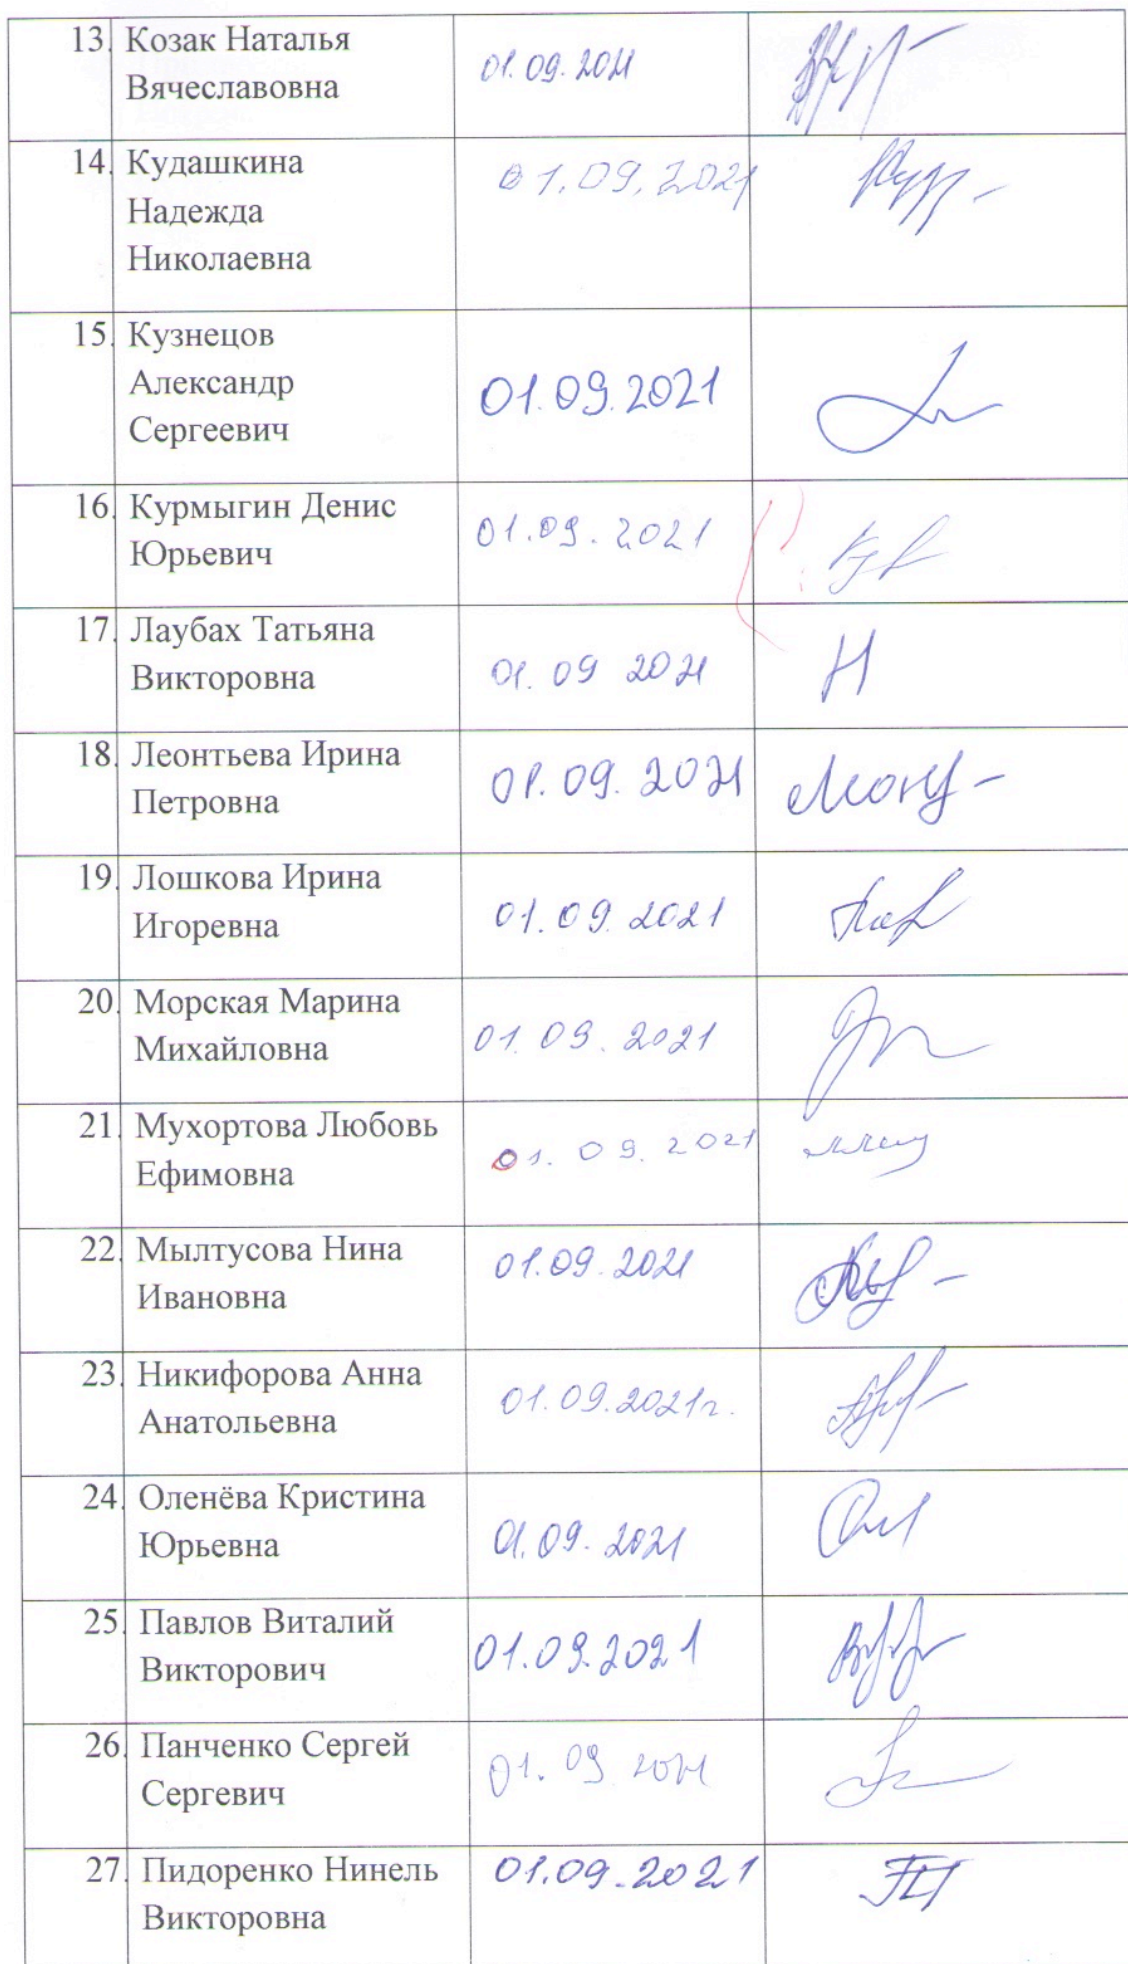 13. Козак Наталья
Вячеславовна
01.09.2021
14. Кудашкина
Надежда
Николаевна
01.09.2021
15. Кузнецов
Александр
Сергеевич
01.09.2021
16. Курмыгин Денис
Юрьевич
01.09.2021
17. Лаубах Татьяна
Викторовна
01.09 2021
18. Леонтьева Ирина
Петровна
01.09.2021
19. Лошкова Ирина
Игоревна
01.09.2021
20. Морская Марина
Михайловна
01.09.2021
21. Мухортова Любовь
Ефимовна
01.09.2021
22. Мылтусова Нина
Ивановна
01.09.2021
23. Никифорова Анна
Анатольевна
01.09.2021г.
24. Оленёва Кристина
Юрьевна
01.09.2021
25. Павлов Виталий
Викторович
01.09.2021
26. Панченко Сергей
Сергевич
01.09 2021
27. Пидоренко Нинель
Викторовна
01.09.2021